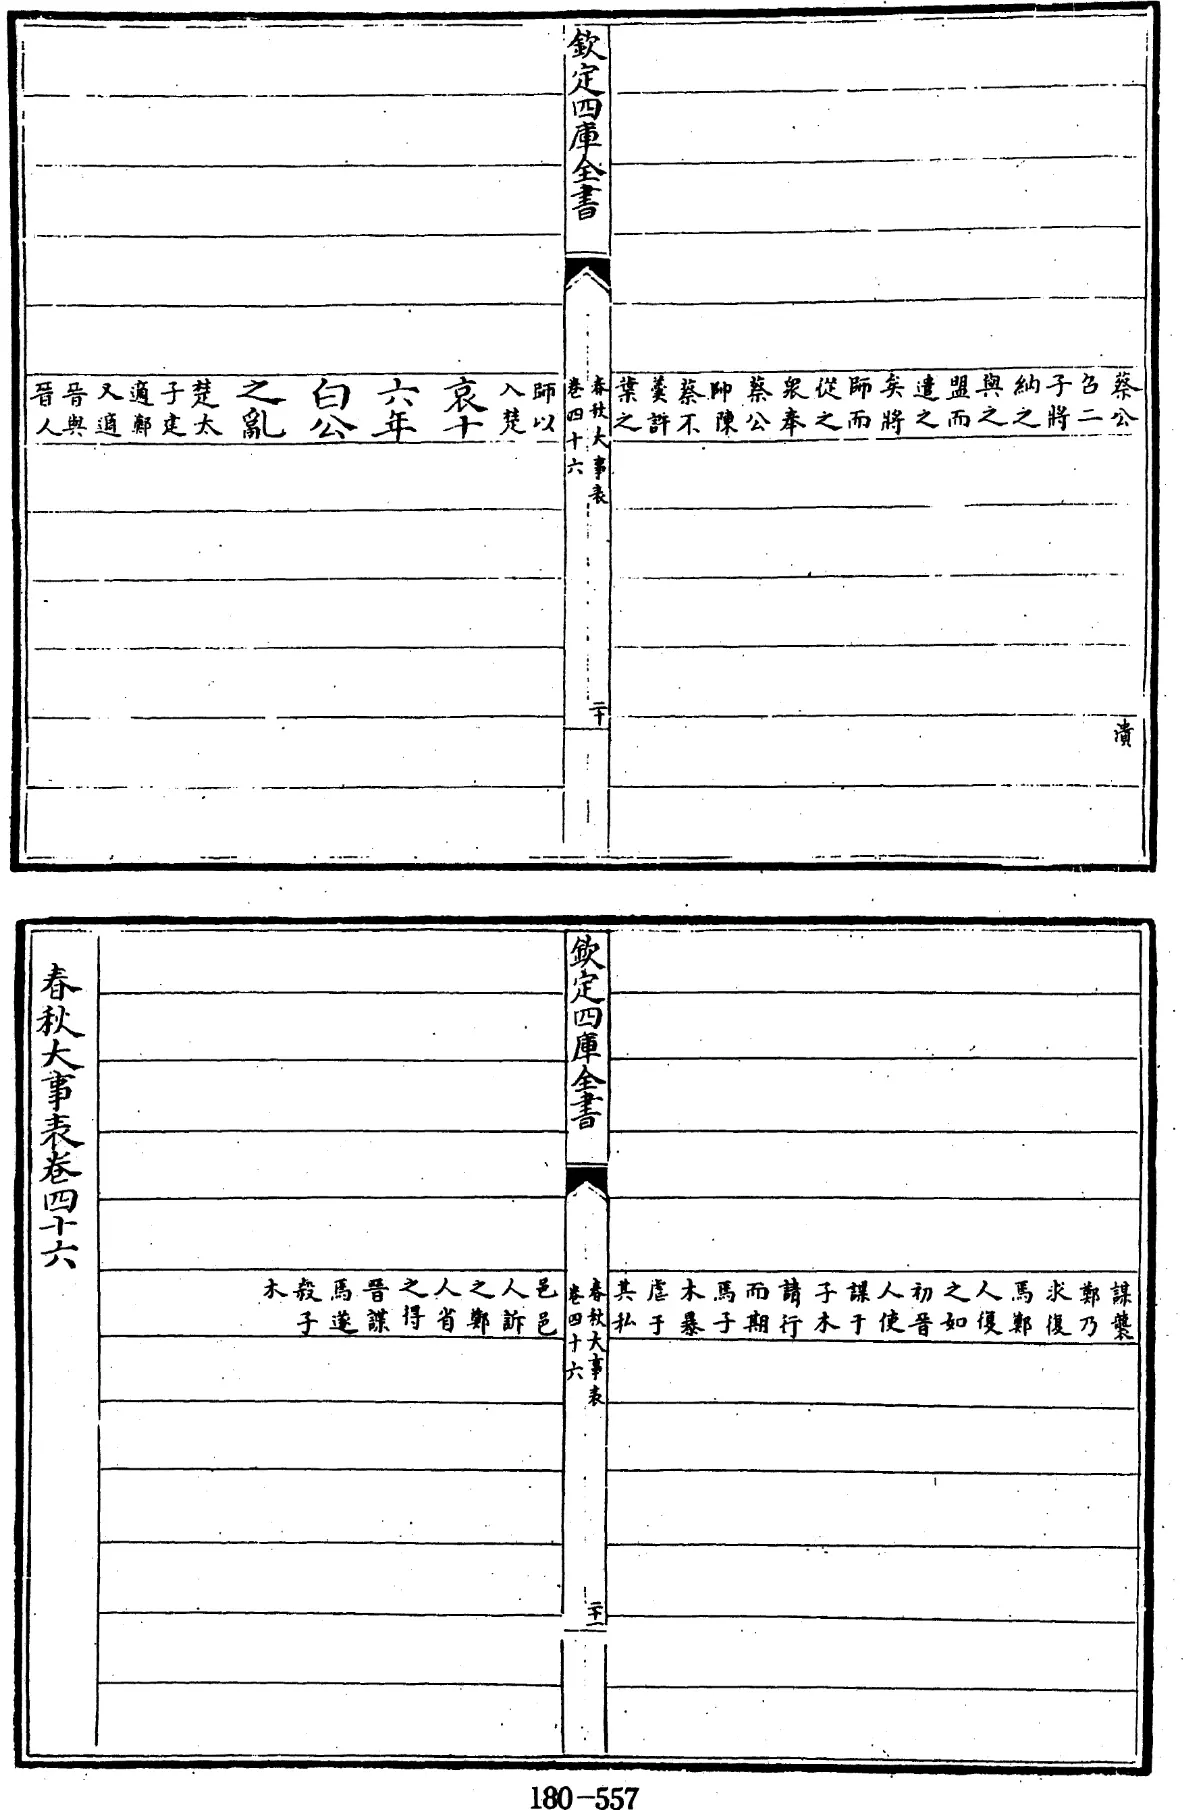 蔡公
召二
子將
納之
與之
盟而
遣之
矣將
師而
從之
衆奉
蔡公
帥陳
蔡不
羮許
葉之
潰
欽定四庫全書
春秋大事表
卷四十六
二十
師以
入楚
哀十
六年
白公
之亂
楚太
子建
適鄭
又適
晉與
晉人
謀襲
鄭乃
求復
焉鄭
人復
之如
初晉
人使
諜于
子木
請行
而期
焉子
木暴
虐于
其私
欽定四庫全書
春秋大事表
卷四十六
二十一
邑邑
人訴
之鄭
人省
之得
晉諜
焉遂
殺子
木
春秋大事表卷四十六
180-557